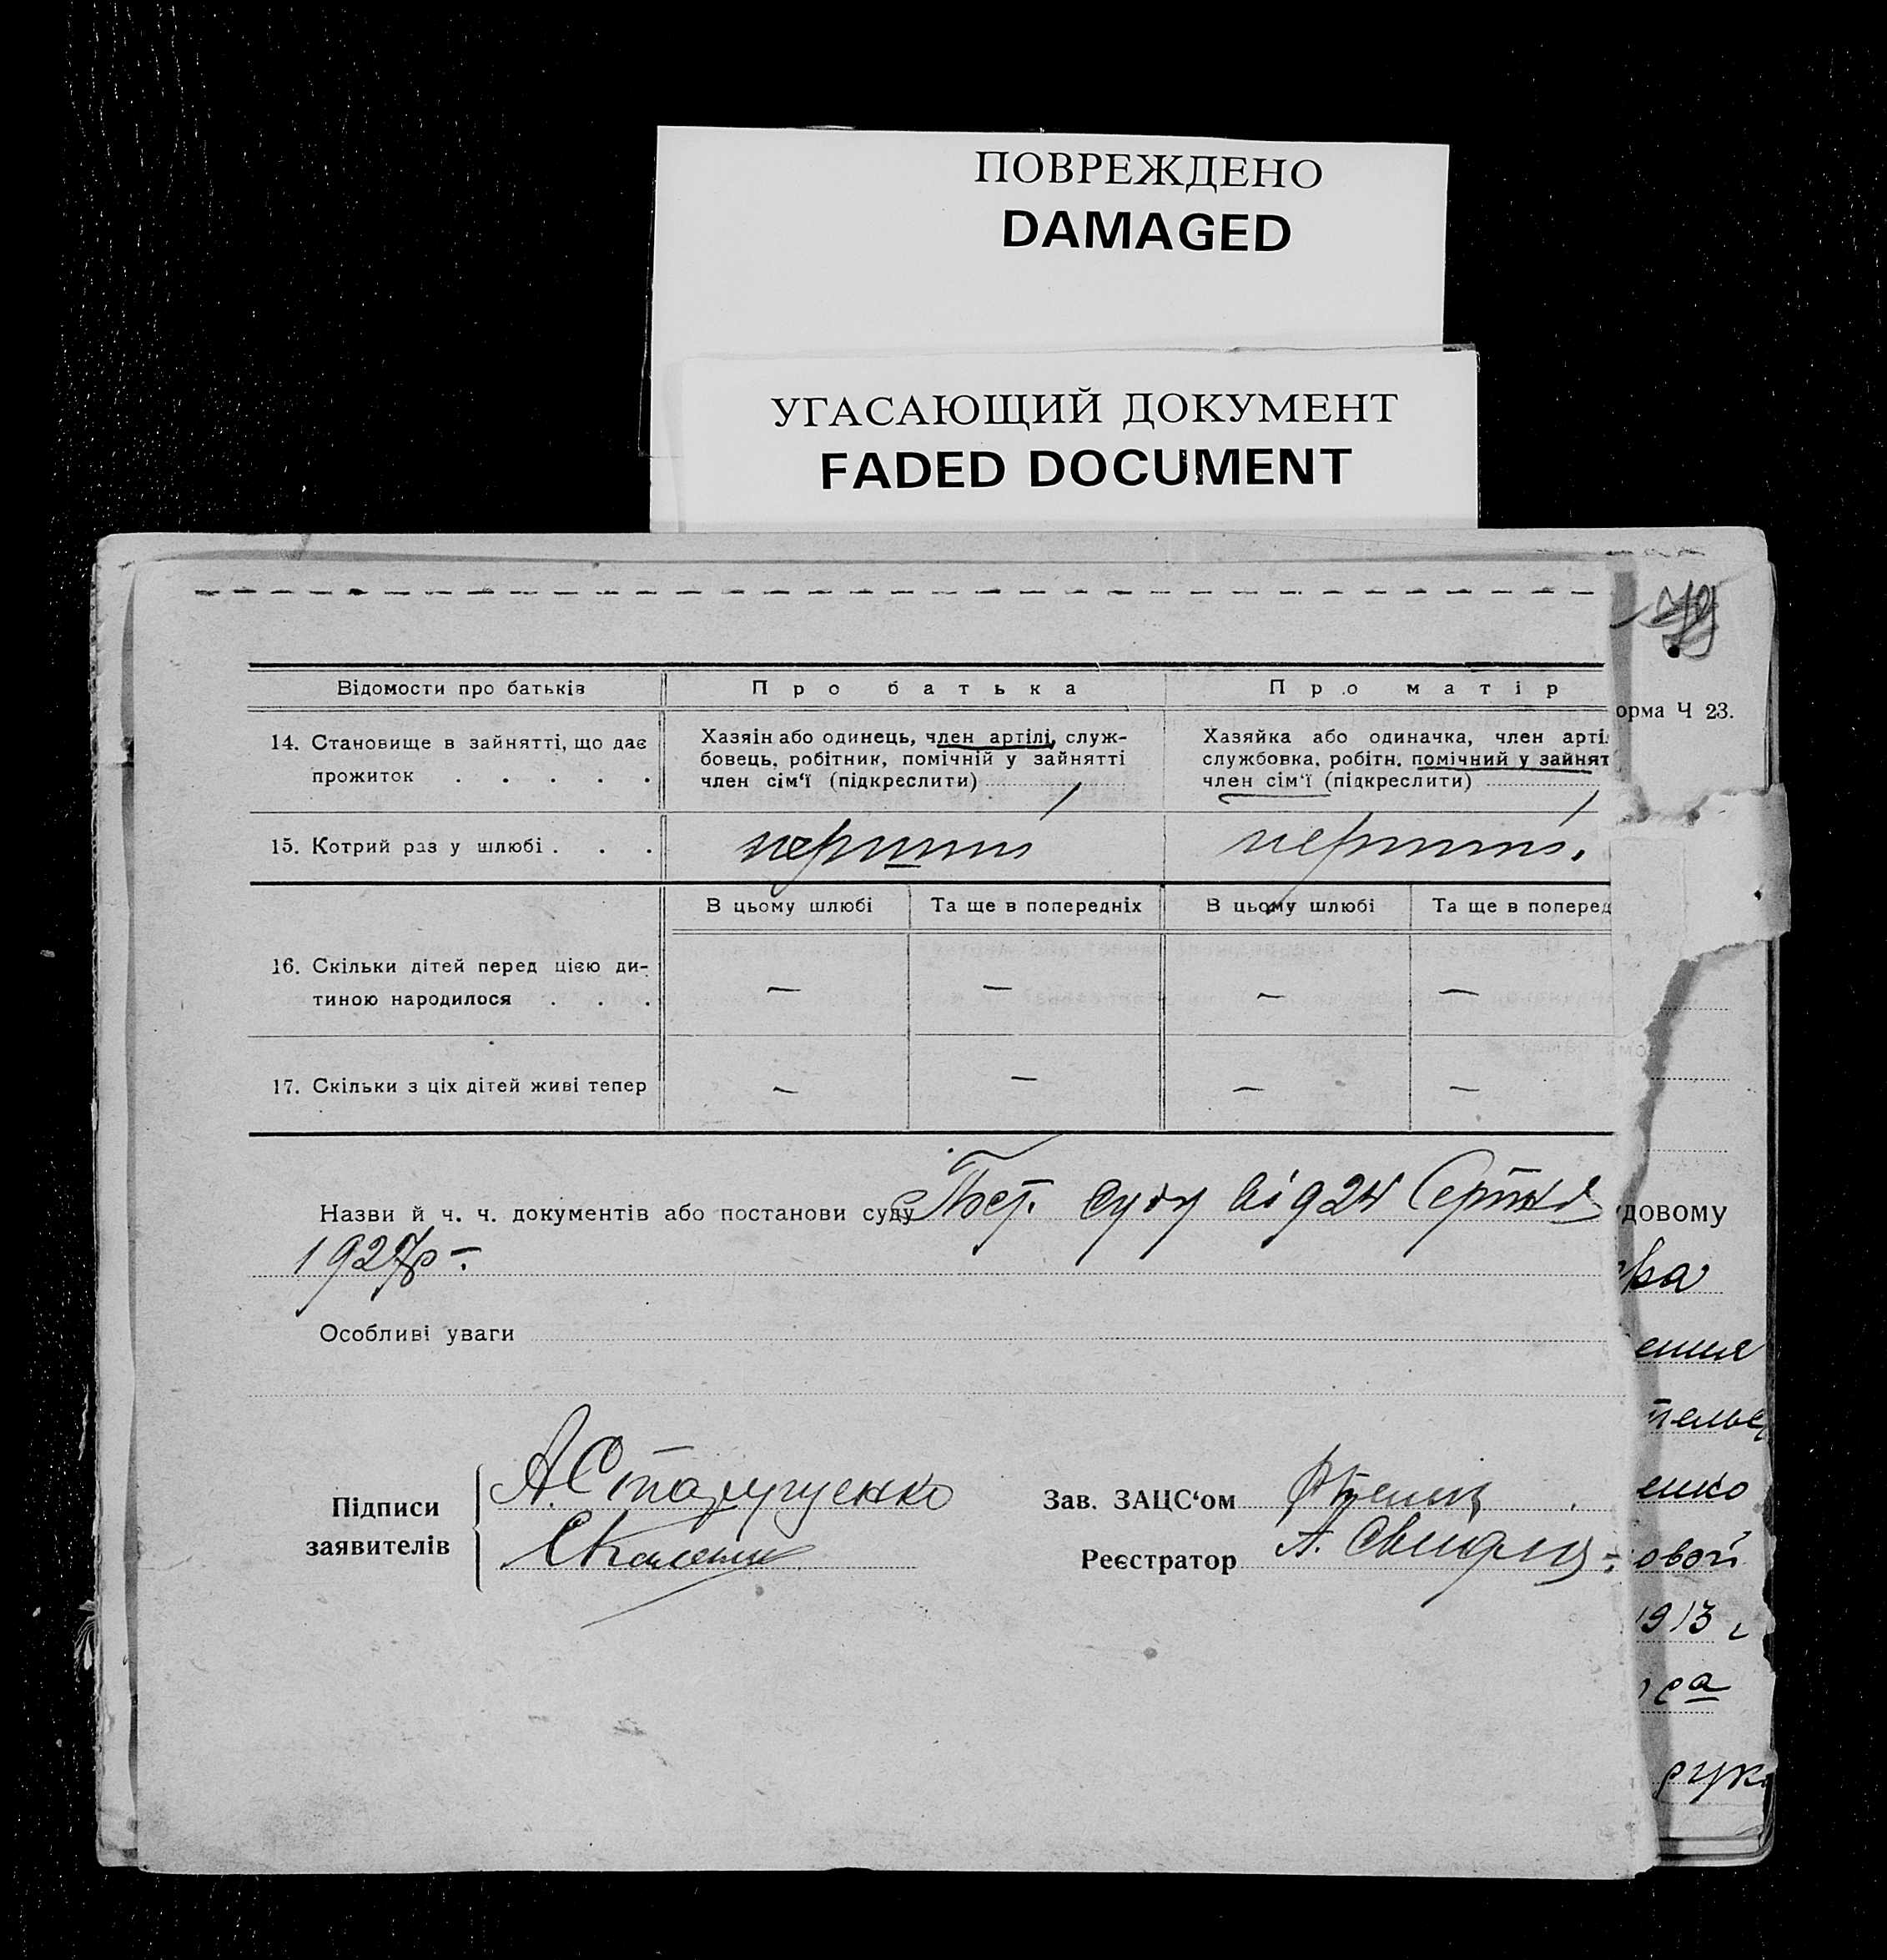 ПОВРЕЖДЕНО
DAMAGED
УГАСАЮЩИЙ ДОКУМЕНТ
FADED DOCUMENT
орма Ч 23.
Відомости про батьків
Про батька
Про матір
14. Становище в зайнятті, що дає
прожиток . . . . .
Хазяін або одинець, член артілі, служ-
бовець, робітник, помічній у зайнятті
член сім‘ї (підкреслити)
Хазяйка або одиначка, член арті
службовка, робітн. помічний у зайнят
член сім‘ї (підкреслити)
15. Котрий раз у шлюбі . . .
перший
перший.
В цьому шлюбі
Та ще в попередніх
В цьому шлюбі
Та ще в поперед
16. Скільки дітей перед цією ди-
тиною народилося . . .
— — — —
17. Скільки з ціх дітей живі тепер
— — — —
Назви й ч. ч. документів або постанови суду Пост. суду від 24 Серпня
1927р.
Особливі уваги
Підписи
заявителів
Зав. ЗАЦС‘ом
Реєстратор
довому
ения
енко
овой
1913 г